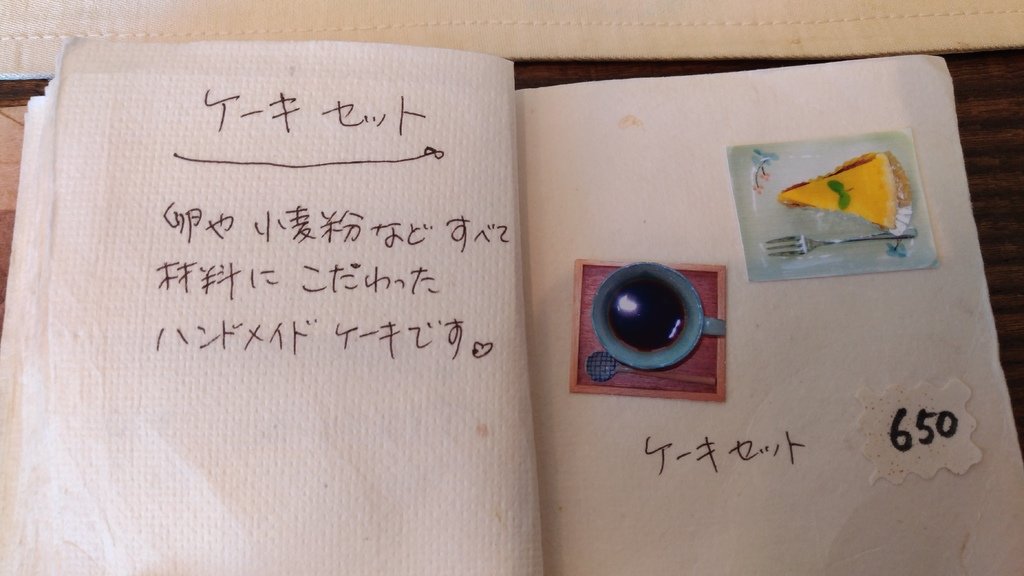 ケーキ セット
卵や 小麦粉 など すべて
材料に こだわった
ハンドメイド ケーキです。
ケーキ セット
650